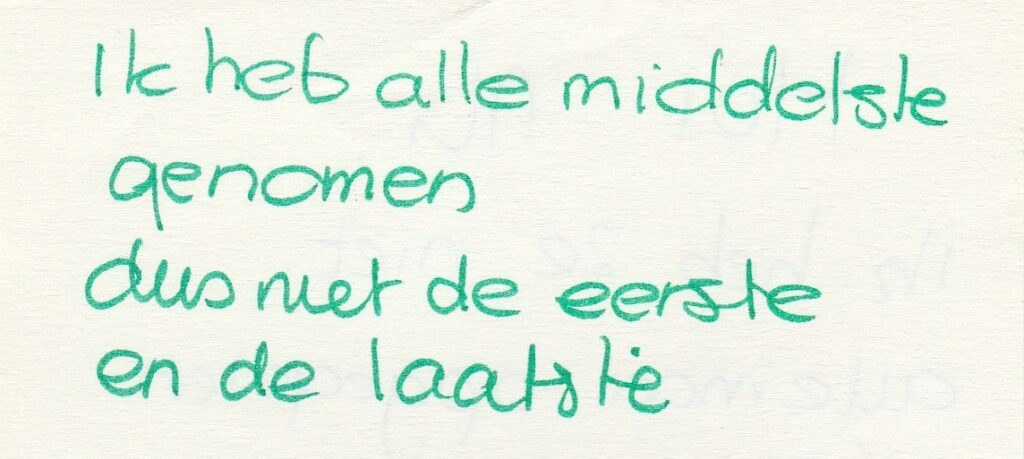 Ik heb alle middelste
genomen
dus niet de eerste
en de laatste